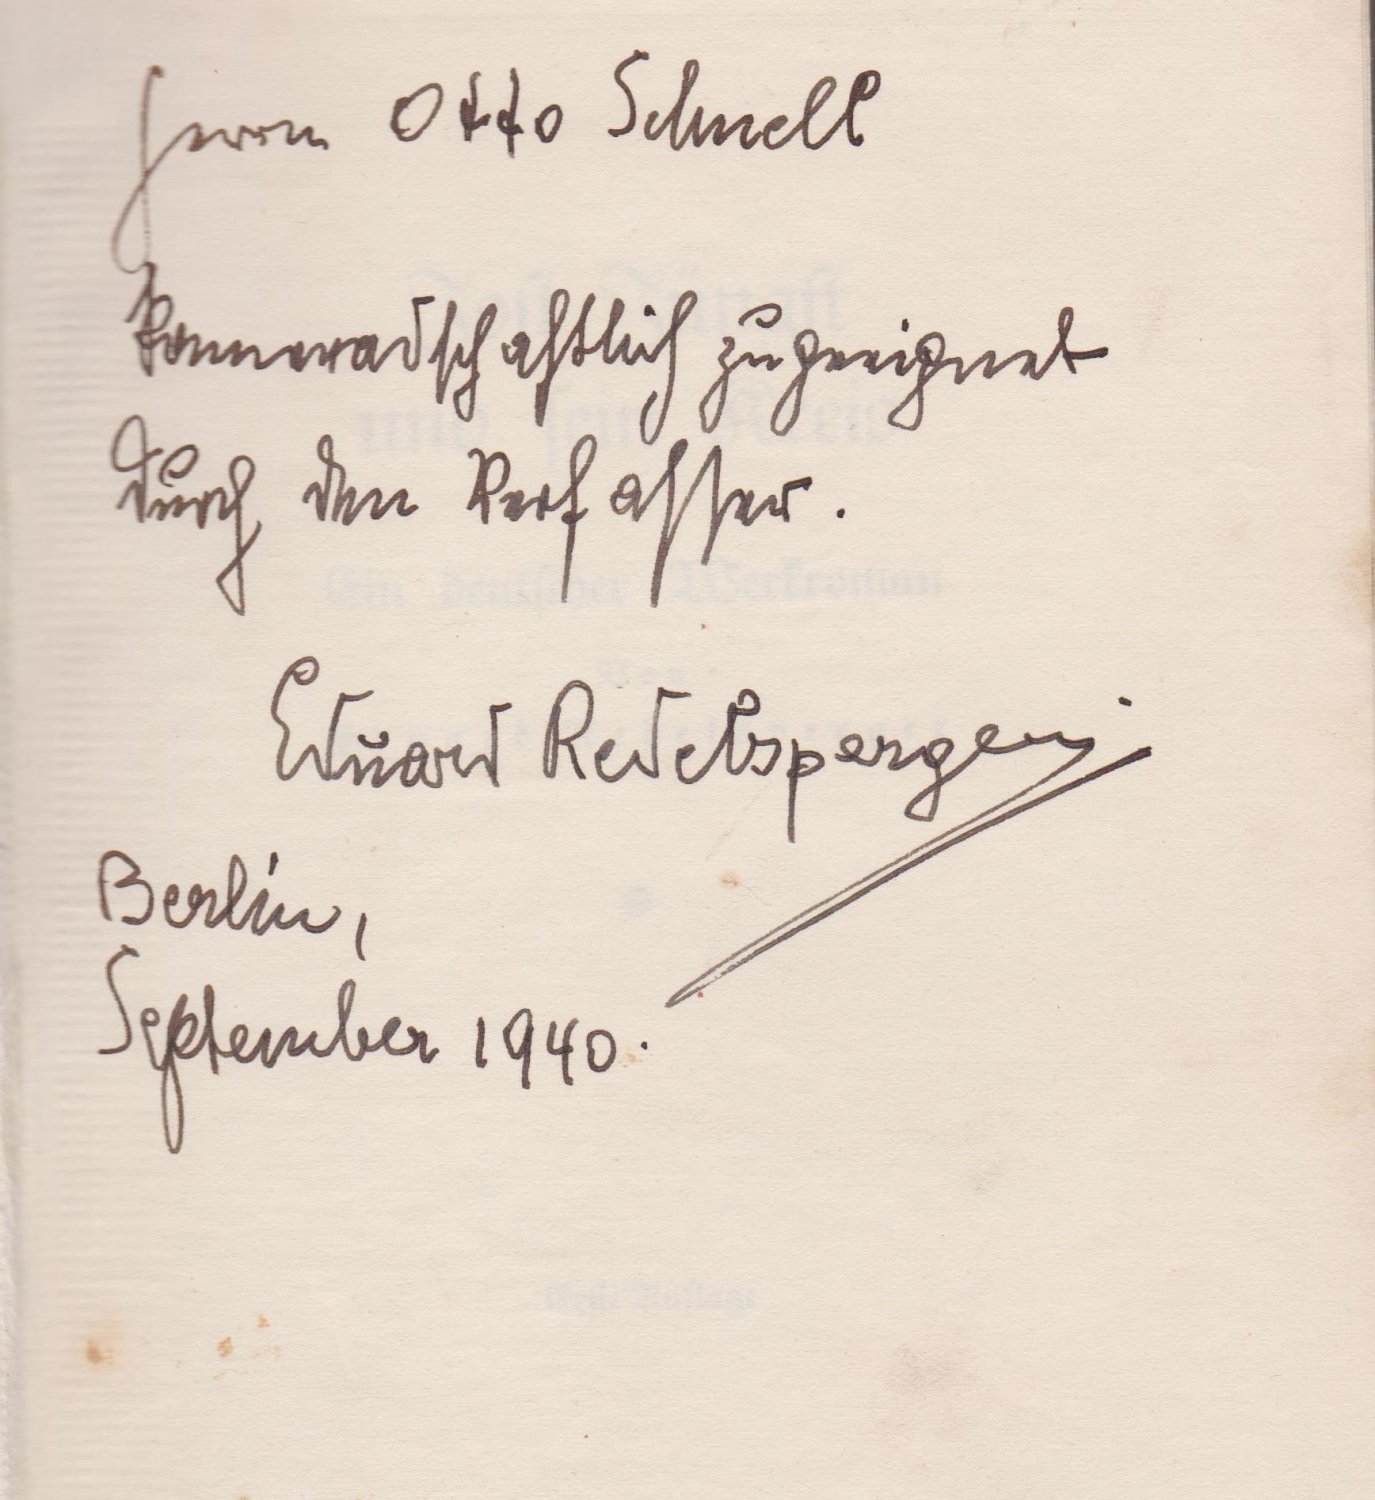 Herrn Otto Schnell
kameradschaftlich zugeeignet
durch den Verfasser.
Eduard Redelsperger
Berlin,
September 1940.
Ein deutscher Werkroman